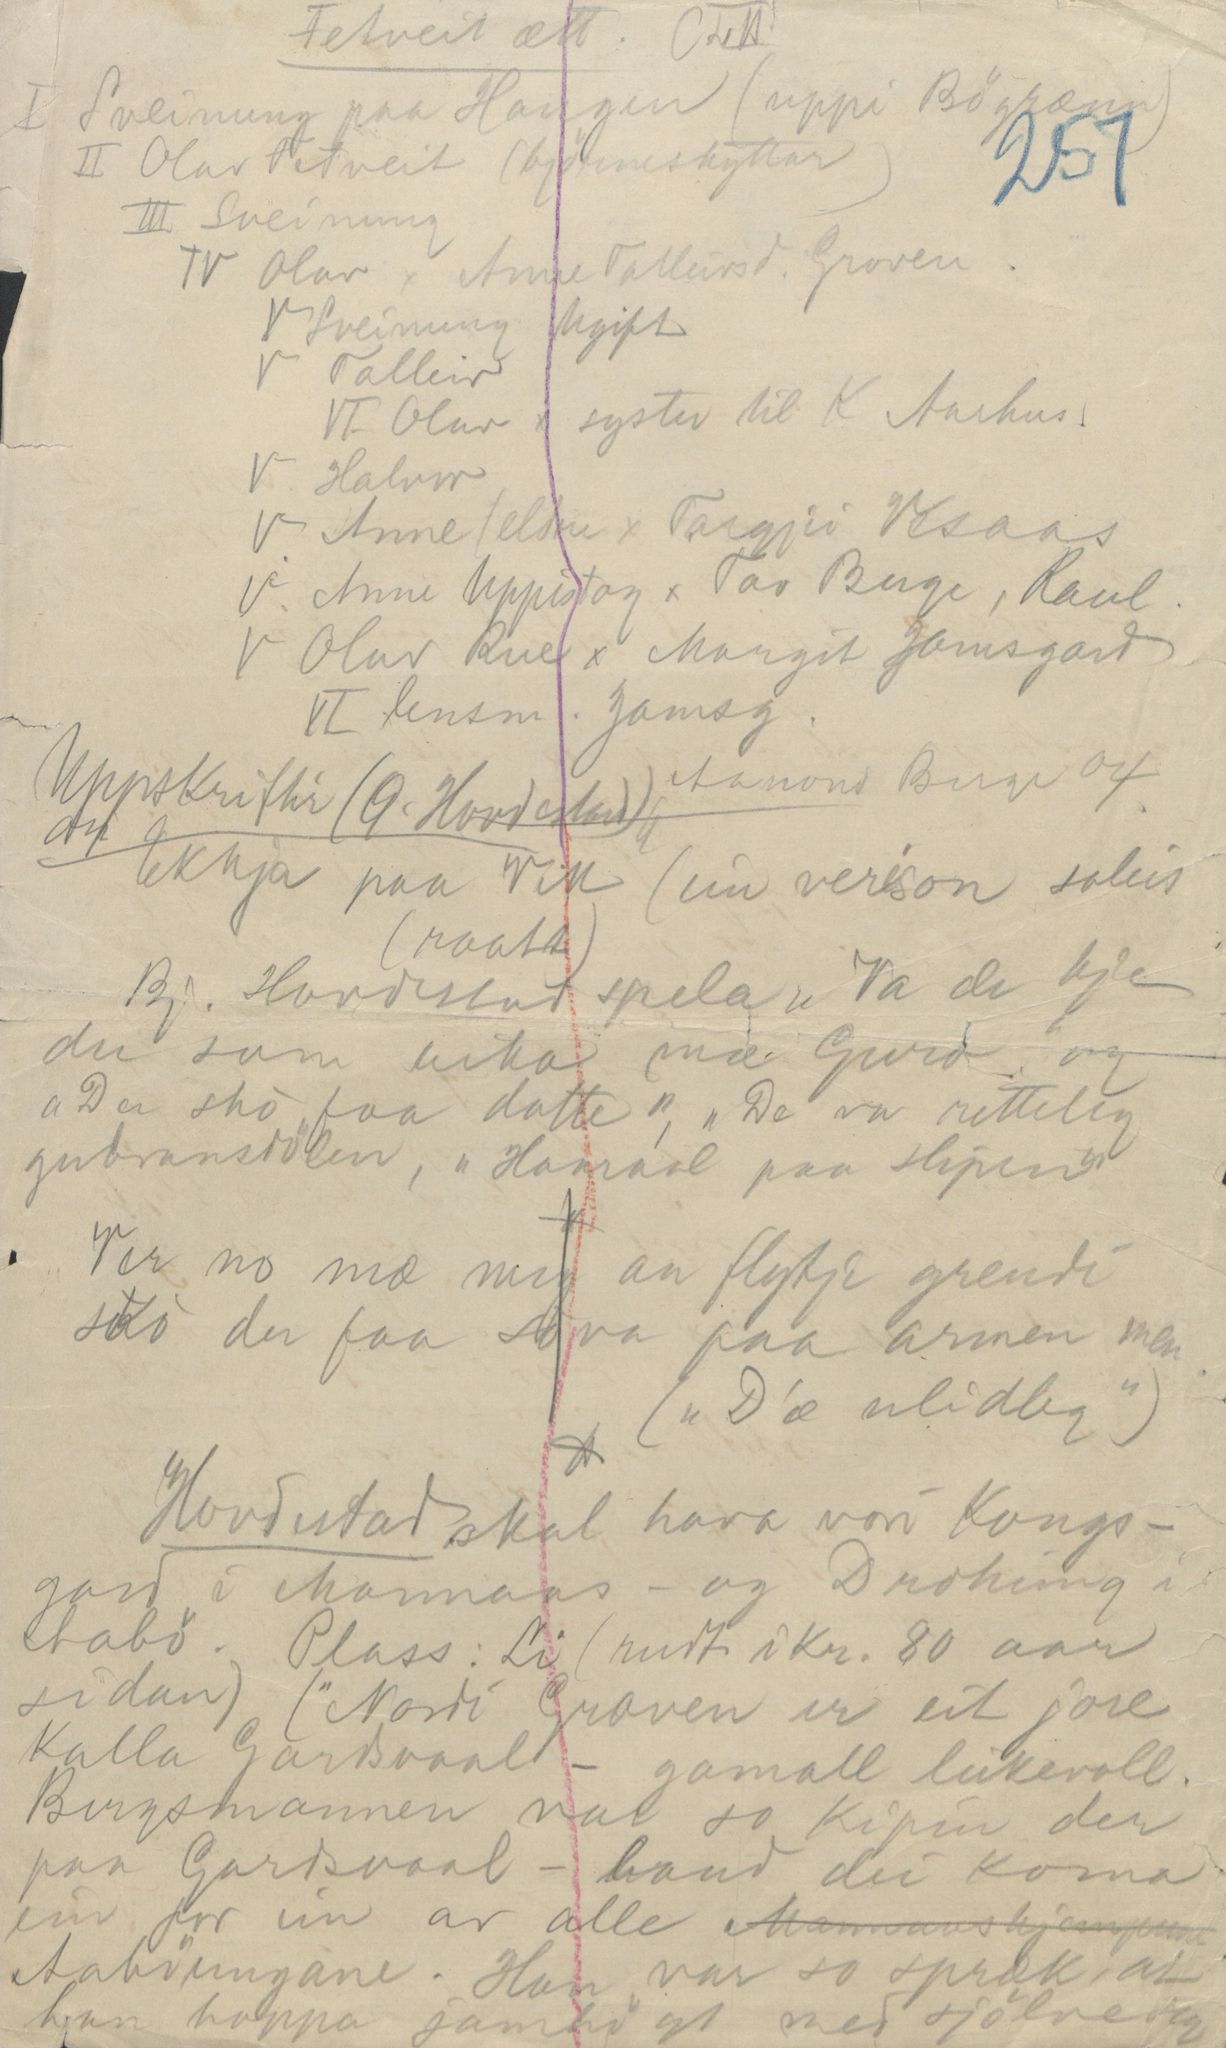 Fetveit ætt.
I Sveinung paa Haugen (uppi Bögrænn)
257
II Olav Fetveit (bjönneskyttar)
III Sveinung
IV Olav x Anne Talleivsd. Groven.
V Sveinung Ugift
V Talleiv
VI Olav x syster til K Aarhus.
V Halvor
V Anne (eldre x Targjei Vesaas
V. Anne Uppistog x Tov Berge, Raul.
V Olav Rue x Margit Jamsgard
VI lensm. Jamsg.
Uppskrifter (G. Hovdestad) Aanond Berge
av
Ekkja paa Vik (ein verison soleis
(raatt)
Bj. Hovdestad spela „Va de kje
du som uika mæ Guro" og
„Du sko faa dotte", „De va rettelig
gubransdölen, „Haaraal paa slipen"
Ver no mæ meg an flytje grendi
sko du faa sova paa armen men
(„D'æ ulidleg")
Hovdestad skal hava vori Kongs-
gard i Mannaas - og Droning i
Aabö. Plass: Li (rudt ikr. 80 aar
sidan) ("Nordi Groven er eit jore
Kalla Gardsvaal - gamall leikevoll.
Bergsmannen var so kipin der
paa Gardsvaal - baud dei koma
ein for ein av alle Mannaaskjempune
Aaböungane. Han var so spræk at
han hoppa jamhögt med sjölve seg